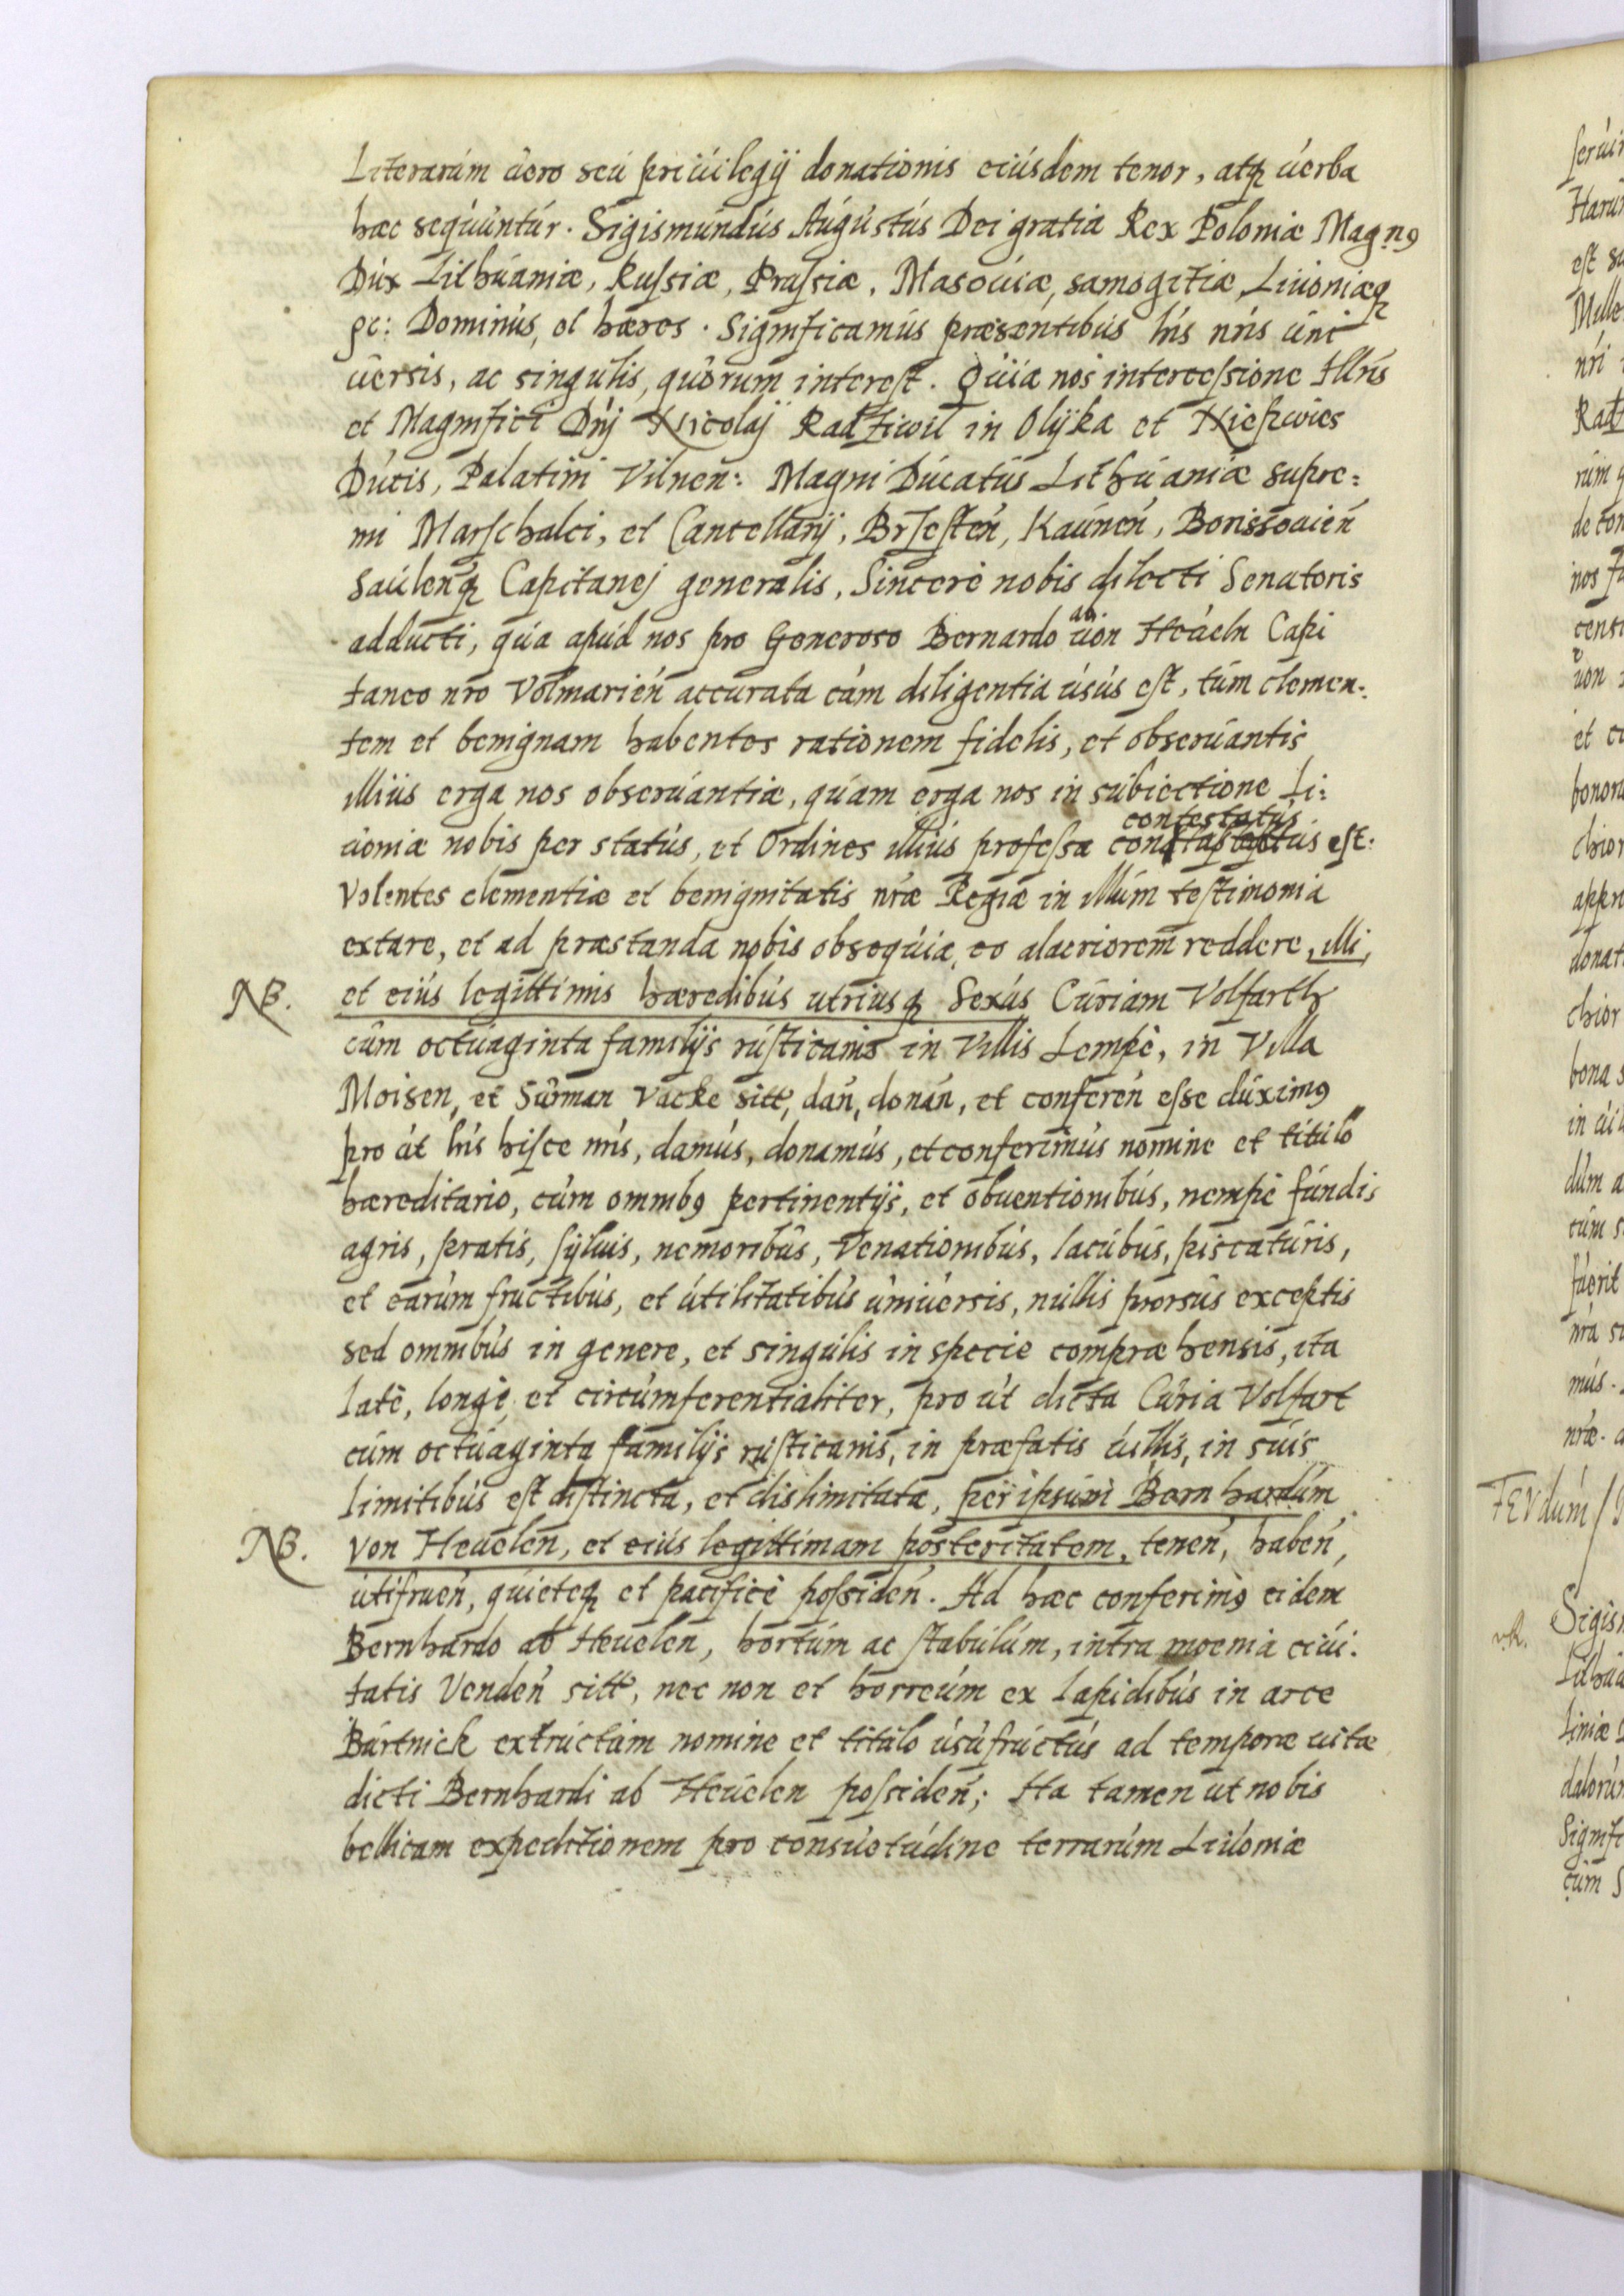 Literarúm úero seú priúilegÿ donationis eiúsdem tenor, atq úerba
hæc seqúúntúr. Sigismúndús Aúgústús Dei gratia Rex Poloniæ Magn9
Dúx Lithúaniæ, Rußiæ, Prußiæ, Masoúiæ, samogitiæ, Liúoniæq
ꝛc: Dominús, et hæres. Significamús præsentibús lris nris úni
úersis, ac singúlis, qúorúm interest. Qúia nos interceßione Illris
et Magnifici Dnj Nicolaj Radziwil in Olÿka et Nießwies
Dúcis, Palatini Vilnen: Magni Dúcatús Lithúaniæ supre:
mi Marschalci, et Cancellarÿ, Brsesten, Kaúnen, Borissoúien
Saúlenq Capitanej generalis, Sincere nobis dilecti Senatoris
addúcti, qúa apúd nos pro Generoso Bernardo úon Heúeln Capi
ab
taneo nro Volmarien accúrata cúm diligentia úsús est, túm clemen:
tem et benignam habentes rationem fidelis, et obserúantis
illiús erga nos obserúantiæ, qúam erga nos in súbiectione Li:
úoniæ nobis per statús, et Ordines illiús profeßa contestatús est.
Volentes clementiæ et benignitatis nræ Regiæ in illúm testimonia
extare, et ad præstanda nobis obseqúia, eo alacriorem reddere, illi,
NB. et eiús legittimis hæredibús utriusq Sexús Cúriam Volfarth
cúm octúaginta familÿs rústicanis in Villis Lempe, in Villa
Moisen, et Súrman Vacke sitt, dan, donan, et conferen eße dúxim9
pro út lris hisce nris, damús, donamús, et conferimús nomine et titúlo
hæreditario, cúm omnib9 pertinentÿs, et obuentionibús, nempe fúndis
agris, pratis, sÿluis, nemoribús, Venationibús, lacúbús, piscatúris,
et earúm frúctibús, et útilitatibús úniúersis, núllis prorsús exceptis
sed omnibús in genere, et singúlis in specie compræhensis, ita
late, longe, et circúmferentialiter, pro út dicta Cúria Volfart
cúm octúaginta familÿs rústicanis, in præfatis úillis, in súis
limitibús est distincta, et dislimitata, per ipsúm Bernhardúm
NB. Von Heúelen, et eiús legittimam posteritatem, tenen, haben,
útifruen, qúieteq et pacifice poßiden. Ad hæc conferim9 eidem
Bernhardo ab Heúelen, hortúm ac stabúlúm, intra moenia ciúi:
tatis Venden sitt, nec non et horreúm ex lapidibús in arce
Búrtnick extrúctúm nomine et titúlo úsúfrúctús ad tempora uitæ
dicti Bernhardi ab Heúelen poßiden; Ita tamen ut nobis
bellicam expeditionem pro consúetúdine terrarúm Liúoniæ